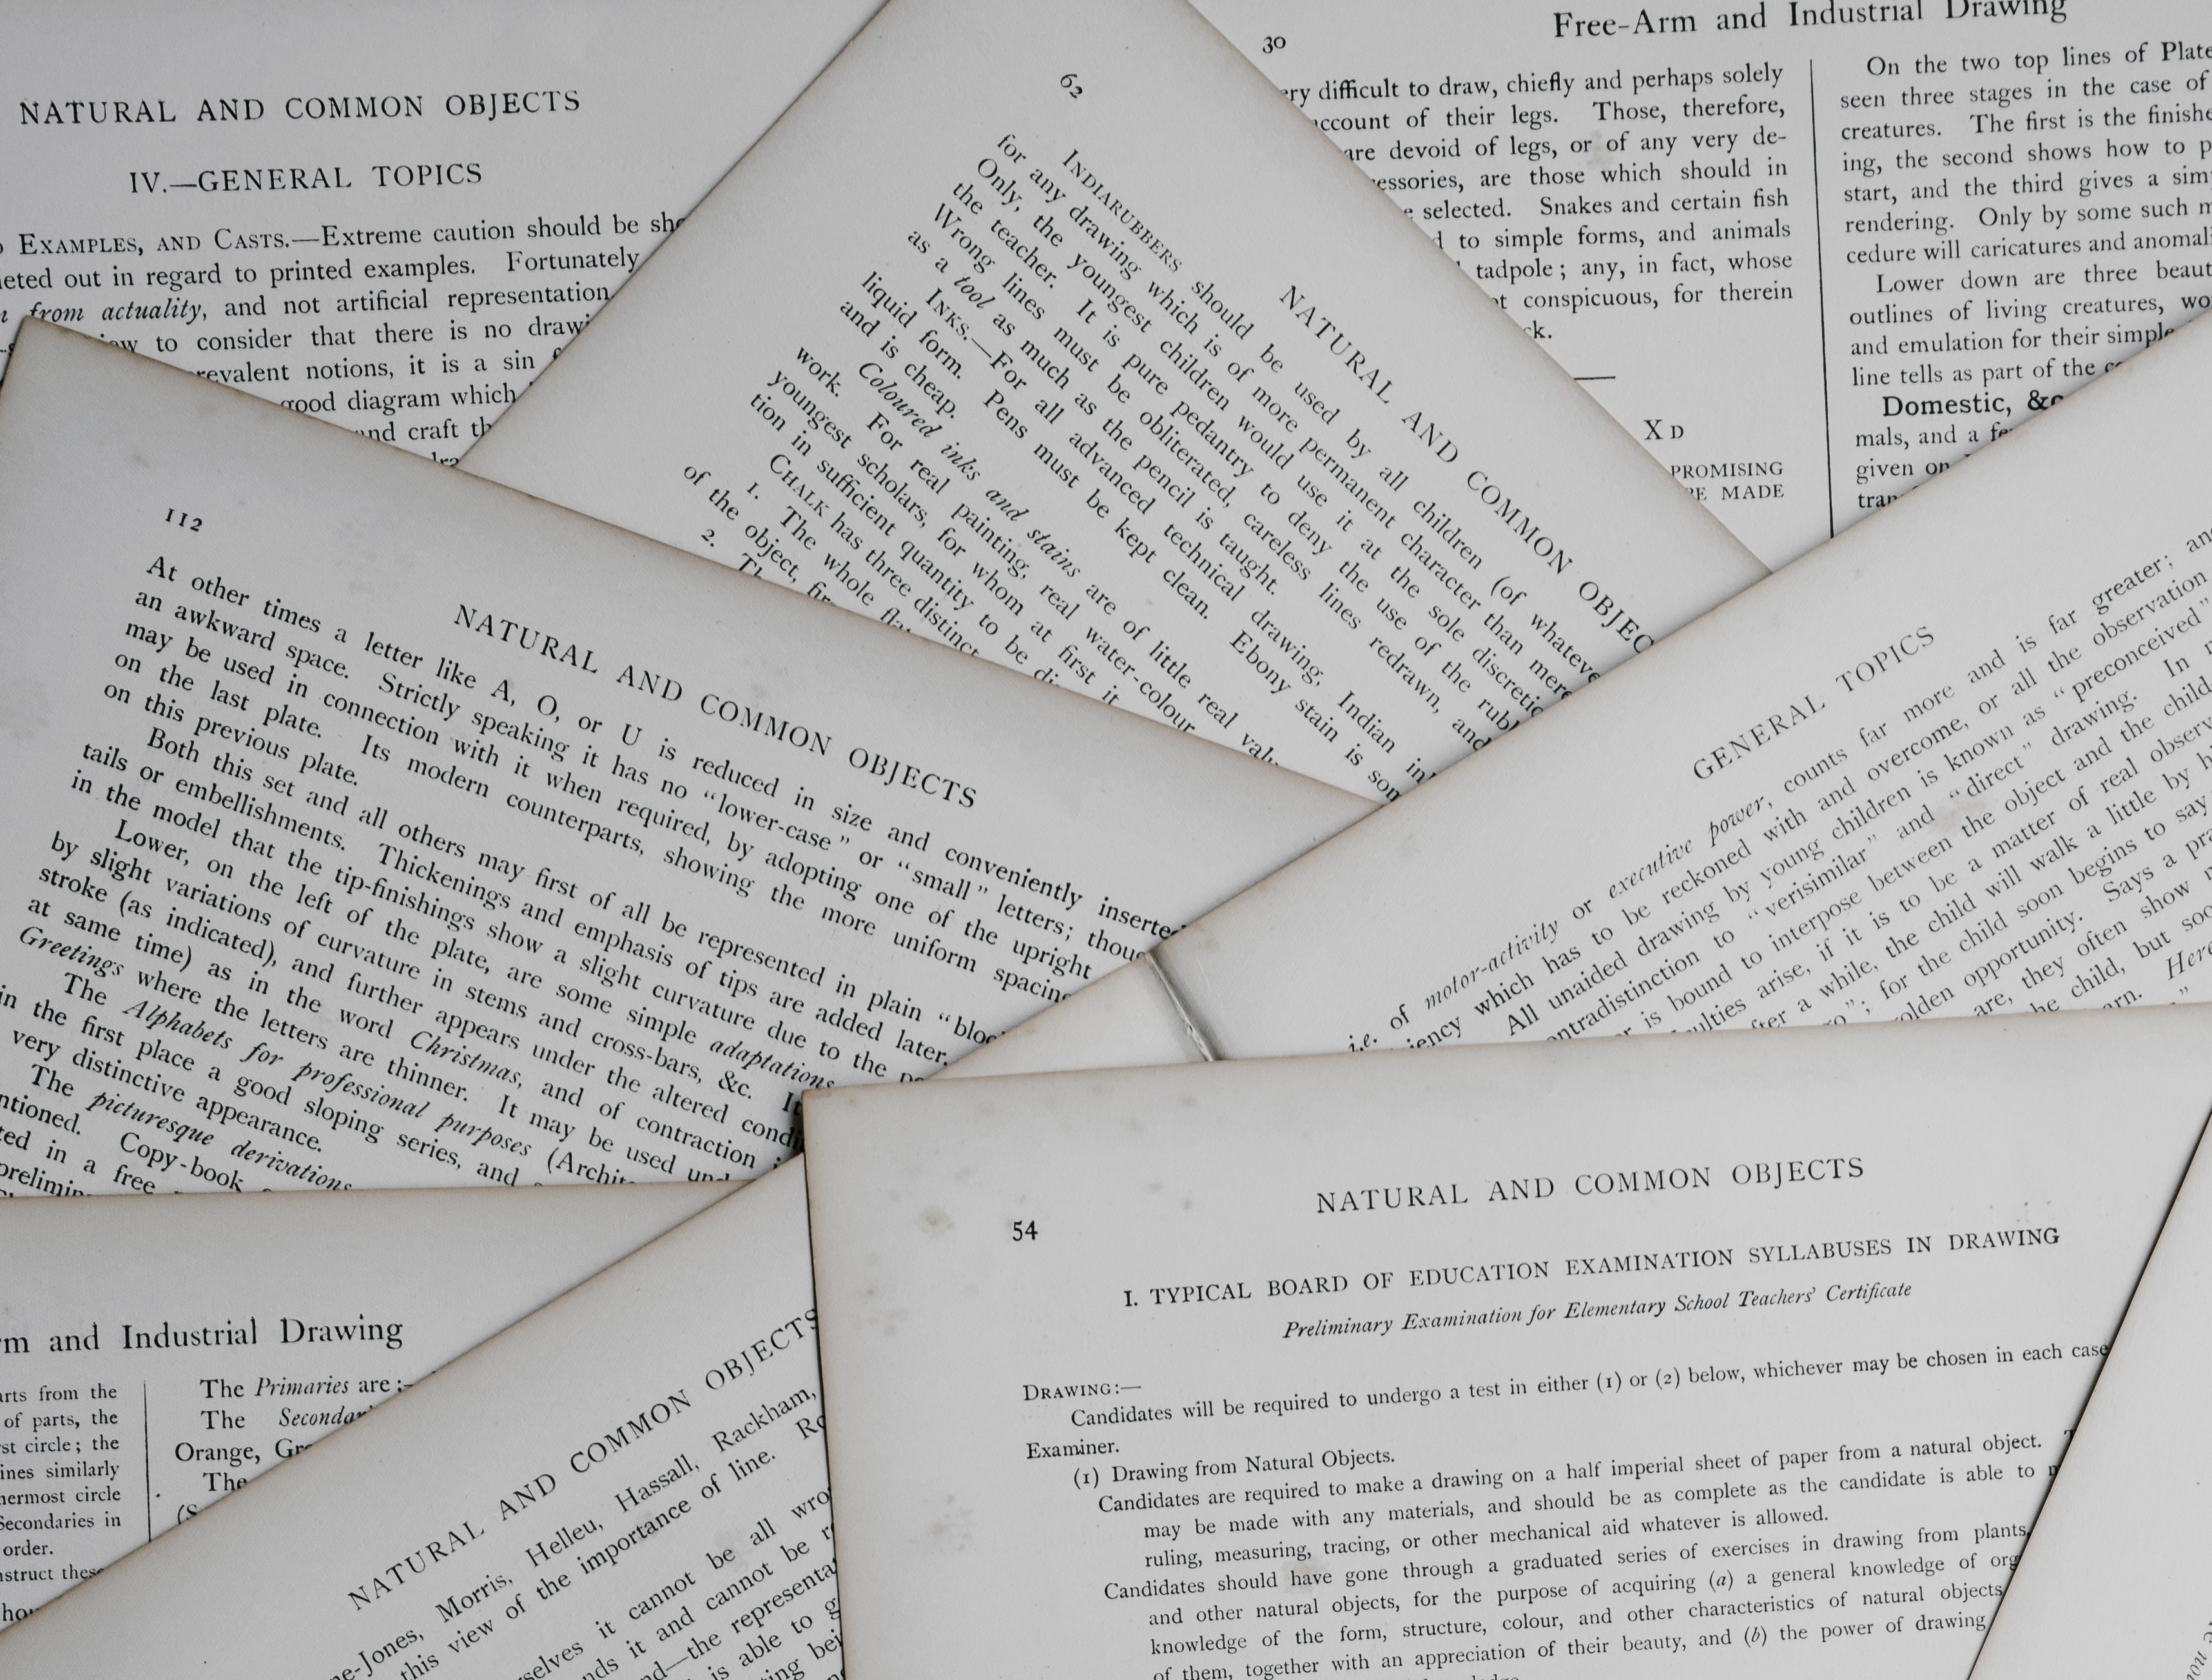 NATURAL AND COMMON OBJECTS
IV.—GENERAL TOPICS
EXAMPLES, AND CASTS.—Extreme caution should be
out in regard to printed examples. Fortunately
from actuality, and not artificial representation
to consider that there is no
notions, it is a sin
good diagram which
and craft
62
NATURAL AND COMMON
INDIARUBBERS should be used by all children (of
for any drawing which is of more permanent character than
Only, the youngest children would use it at the sole
the teacher. It is pure pedantry to deny the use of the
Wrong lines must be obliterated, careless lines redrawn, and
as a tool as much as the pencil is taught.
INKS.—For all advanced technical drawing, Indian
liquid form. Pens must be kept clean. Ebony stain is
and is cheap.
Coloured inks and stains are of little real
work. For real painting, real water-colour
youngest scholars, for whom at first it
tion in sufficient quantity to be
CHALK has three distinct
1. The whole
of the object,
2.
30
Free-Arm and Industrial Drawing
difficult to draw, chiefly and perhaps solely
account of their legs. Those, therefore,
are devoid of legs, or of any very de-
are those which should in
selected. Snakes and certain fish
to simple forms, and animals
tadpole; any, in fact, whose
conspicuous, for therein
X D
PROMISING
MADE
On the two top lines of
seen three stages in the case of
creatures. The first is the
ing, the second shows how to
start, and the third gives a
rendering. Only by some such
cedure will caricatures and
Lower down are three
outlines of living creatures,
and emulation for their
line tells as part of the
Domestic, &c
mals, and a
given on
112
NATURAL AND COMMON OBJECTS
At other times a letter like A, O, or U is reduced in size and conveniently inserted
an awkward space. Strictly speaking it has no “lower-case” or “small” letters; though
may be used in connection with it when required, by adopting one of the upright
on the last plate. Its modern counterparts, showing the more uniform spacing
on this previous plate.
Both this set and all others may first of all be represented in plain
tails or embellishments. Thickenings and emphasis of tips are added later.
in the model that the tip-finishings show a slight curvature due to the
Lower, on the left of the plate, are some simple adaptations
by slight variations of curvature in stems and cross-bars, &c.
stroke (as indicated), and further appears under the altered
at same time) as in the word Christmas, and of contraction
Greetings where the letters are thinner. It may be used
The Alphabets for professional purposes
in the first place a good sloping series, and
very distinctive appearance.
The picturesque derivations
Copy-book
in a free
GENERAL TOPICS
i.e. of motor-activity or executive power, counts far more and is far greater;
which has to be reckoned with and overcome, or all the observation
All unaided drawing by young children is known as “preconceived”
to “verisimilar” and “direct” drawing. In
is bound to interpose between the object and the
arise, if it is to be a matter of real
a while, the child will walk a little by
for the child soon begins to say
opportunity. Says a
are, they often show
the child, but
Here
and Industrial Drawing
from the
of parts, the
circle; the
similarly
circle
Secondaries in
order.
The Primaries are:—
The
Orange,
The
NATURAL AND COMMON OBJECTS
Morris, Helleu, Hassall, Rackham,
this view of the importance of line.
it cannot be all
it and cannot be
is able to
54
NATURAL AND COMMON OBJECTS
I. TYPICAL BOARD OF EDUCATION EXAMINATION SYLLABUSES IN DRAWING
Preliminary Examination for Elementary School Teachers' Certificate
DRAWING:—
Candidates will be required to undergo a test in either (1) or (2) below, whichever may be chosen in each case
Examiner.
(1) Drawing from Natural Objects.
Candidates are required to make a drawing on a half imperial sheet of paper from a natural object.
may be made with any materials, and should be as complete as the candidate is able to
ruling, measuring, tracing, or other mechanical aid whatever is allowed.
Candidates should have gone through a graduated series of exercises in drawing from plants,
and other natural objects, for the purpose of acquiring (a) a general knowledge of
knowledge of the form, structure, colour, and other characteristics of natural objects
of them, together with an appreciation of their beauty, and (b) the power of drawing